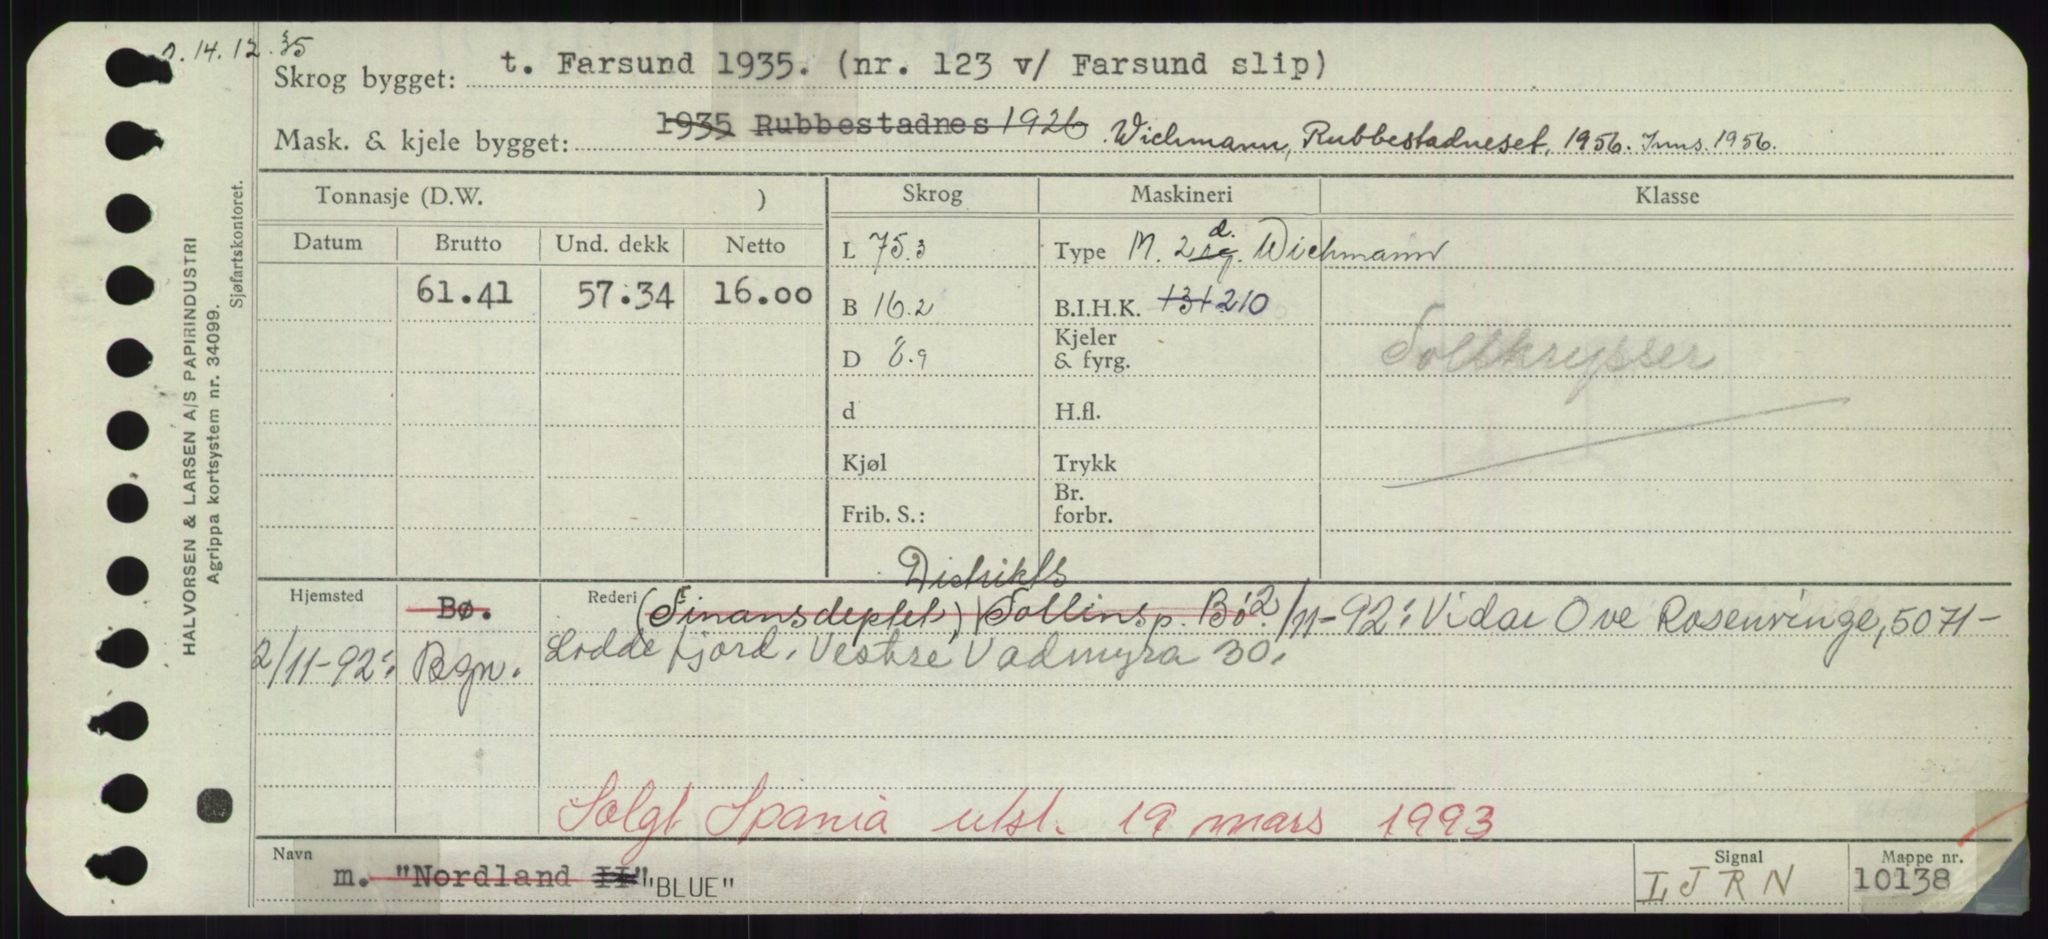 14.12.35
Skrog bygget: t. Farsund 1935. (nr. 123 v/ Farsund slip)
Mask. & kjele bygget: 1935 Rubbestadnes 1926. Wichmann, Rubbestadneset, 1956. Inns. 1956.
Tonnasje (D.W. ) Skrog Maskineri Klasse
Datum Brutto Und. dekk Netto L 75.3 Type M. 2 d. Wichmann
61.41 57.34 16.00 B 16.2 B.I.H.K. 131 210
D 8.9 Kjeler & fyrg. Tollkrysser
d H.fl.
Kjøl Trykk
Frib. S.: Br. forbr.
Distrikts
Hjemsted Bø. Rederi (Finansdeptet), Tollinsp. Bø. 2/11-92: Vidar Ove Rosenvinge, 5071-
2/11-92: Bgn. Loddefjord. Vestre Vadmyra 30.
Solgt Spania utsl. 19 mars 1993
Navn m. "Nordland II" "BLUE" Signal LJRN Mappe nr. 10138
HALVORSEN & LARSEN A/S PAPIRINDUSTRI
Agrippa kortsystem nr. 34099.
Sjøfartskontoret.